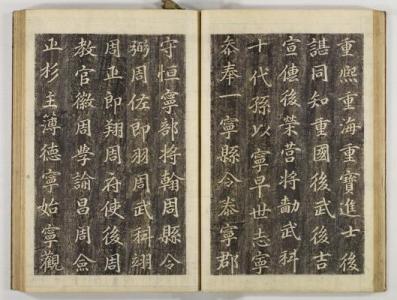 重熙重海重寶進士後
諶同知重國後武後吉
宣僡後榮营將勳武科
十代孫以寧早世志寧
叅奉一寧縣令泰寧郡
守恒寧部將翰周縣令
弼周佐郎羽周武科翊
周正郎翔周府使後周
教官徽周學諭昌周僉
正杉主簿德寧始寧觀